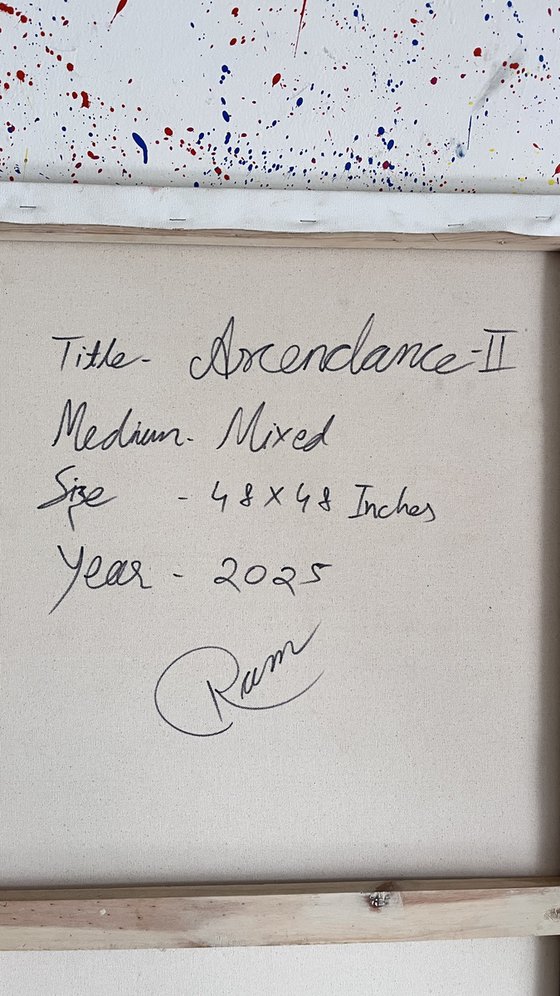 Title - Ascendance-II
Medium - Mixed
Size - 48 X 48 Inches
Year - 2025
Ram